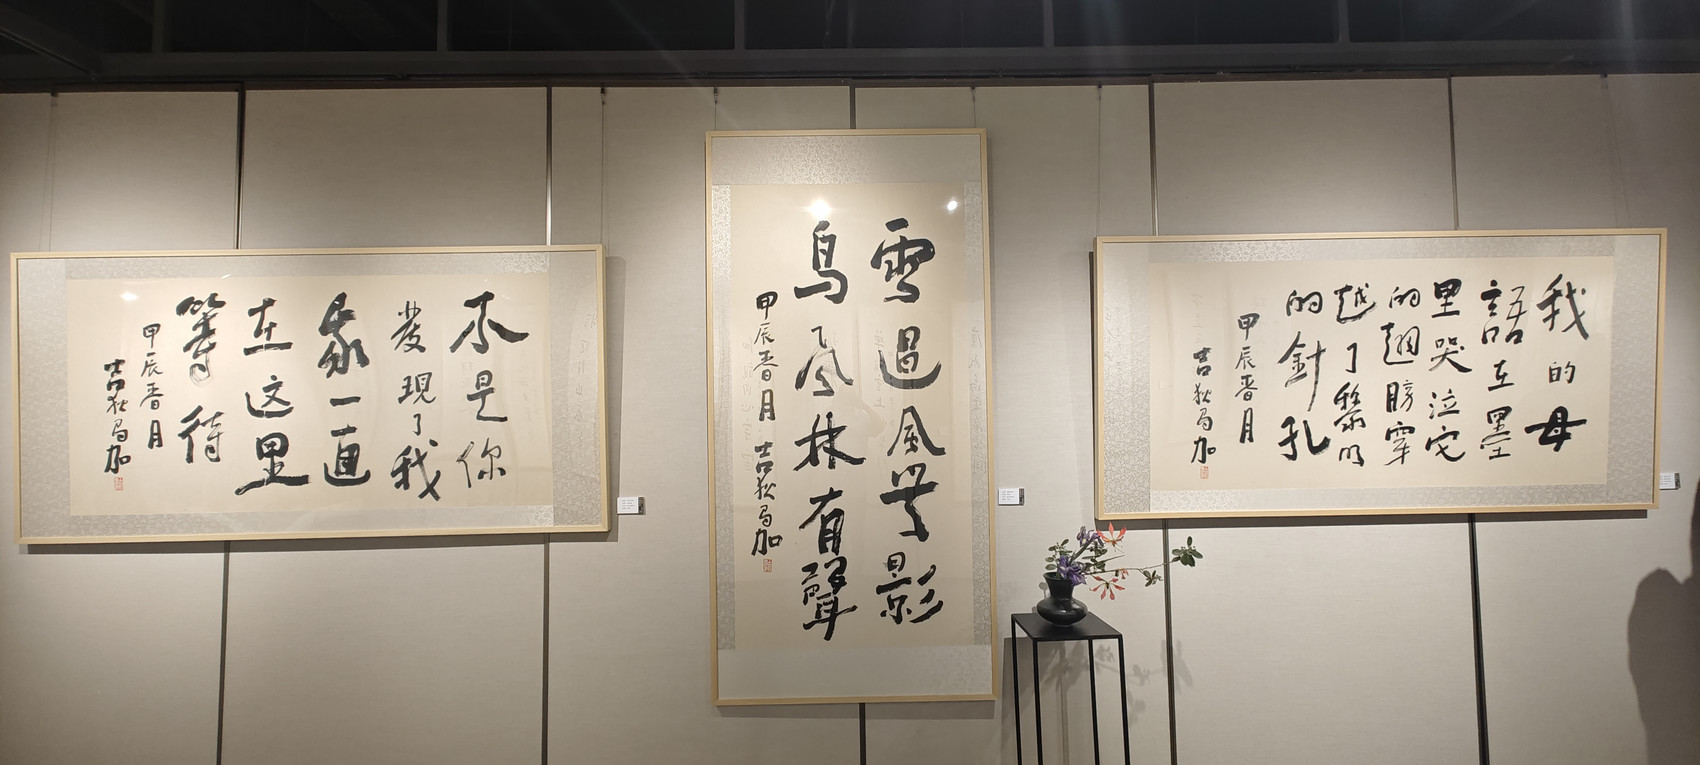 不是你
發現了我
我一直
在这里
等待
甲辰春月
吉狄馬加
雪過風無影
鳥 林有聲
甲辰春月 吉狄馬加
我的母
語在墨
里哭泣它
的翅膀穿
越了黎明
的針孔
甲辰春月
吉狄馬加